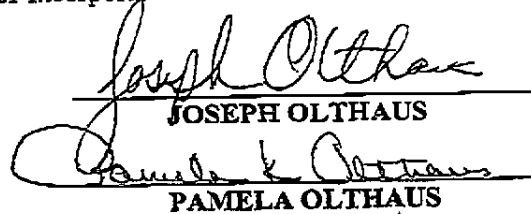 Joseph Olthaus
JOSEPH OLTHAUS
Pamela K Olthaus
PAMELA OLTHAUS